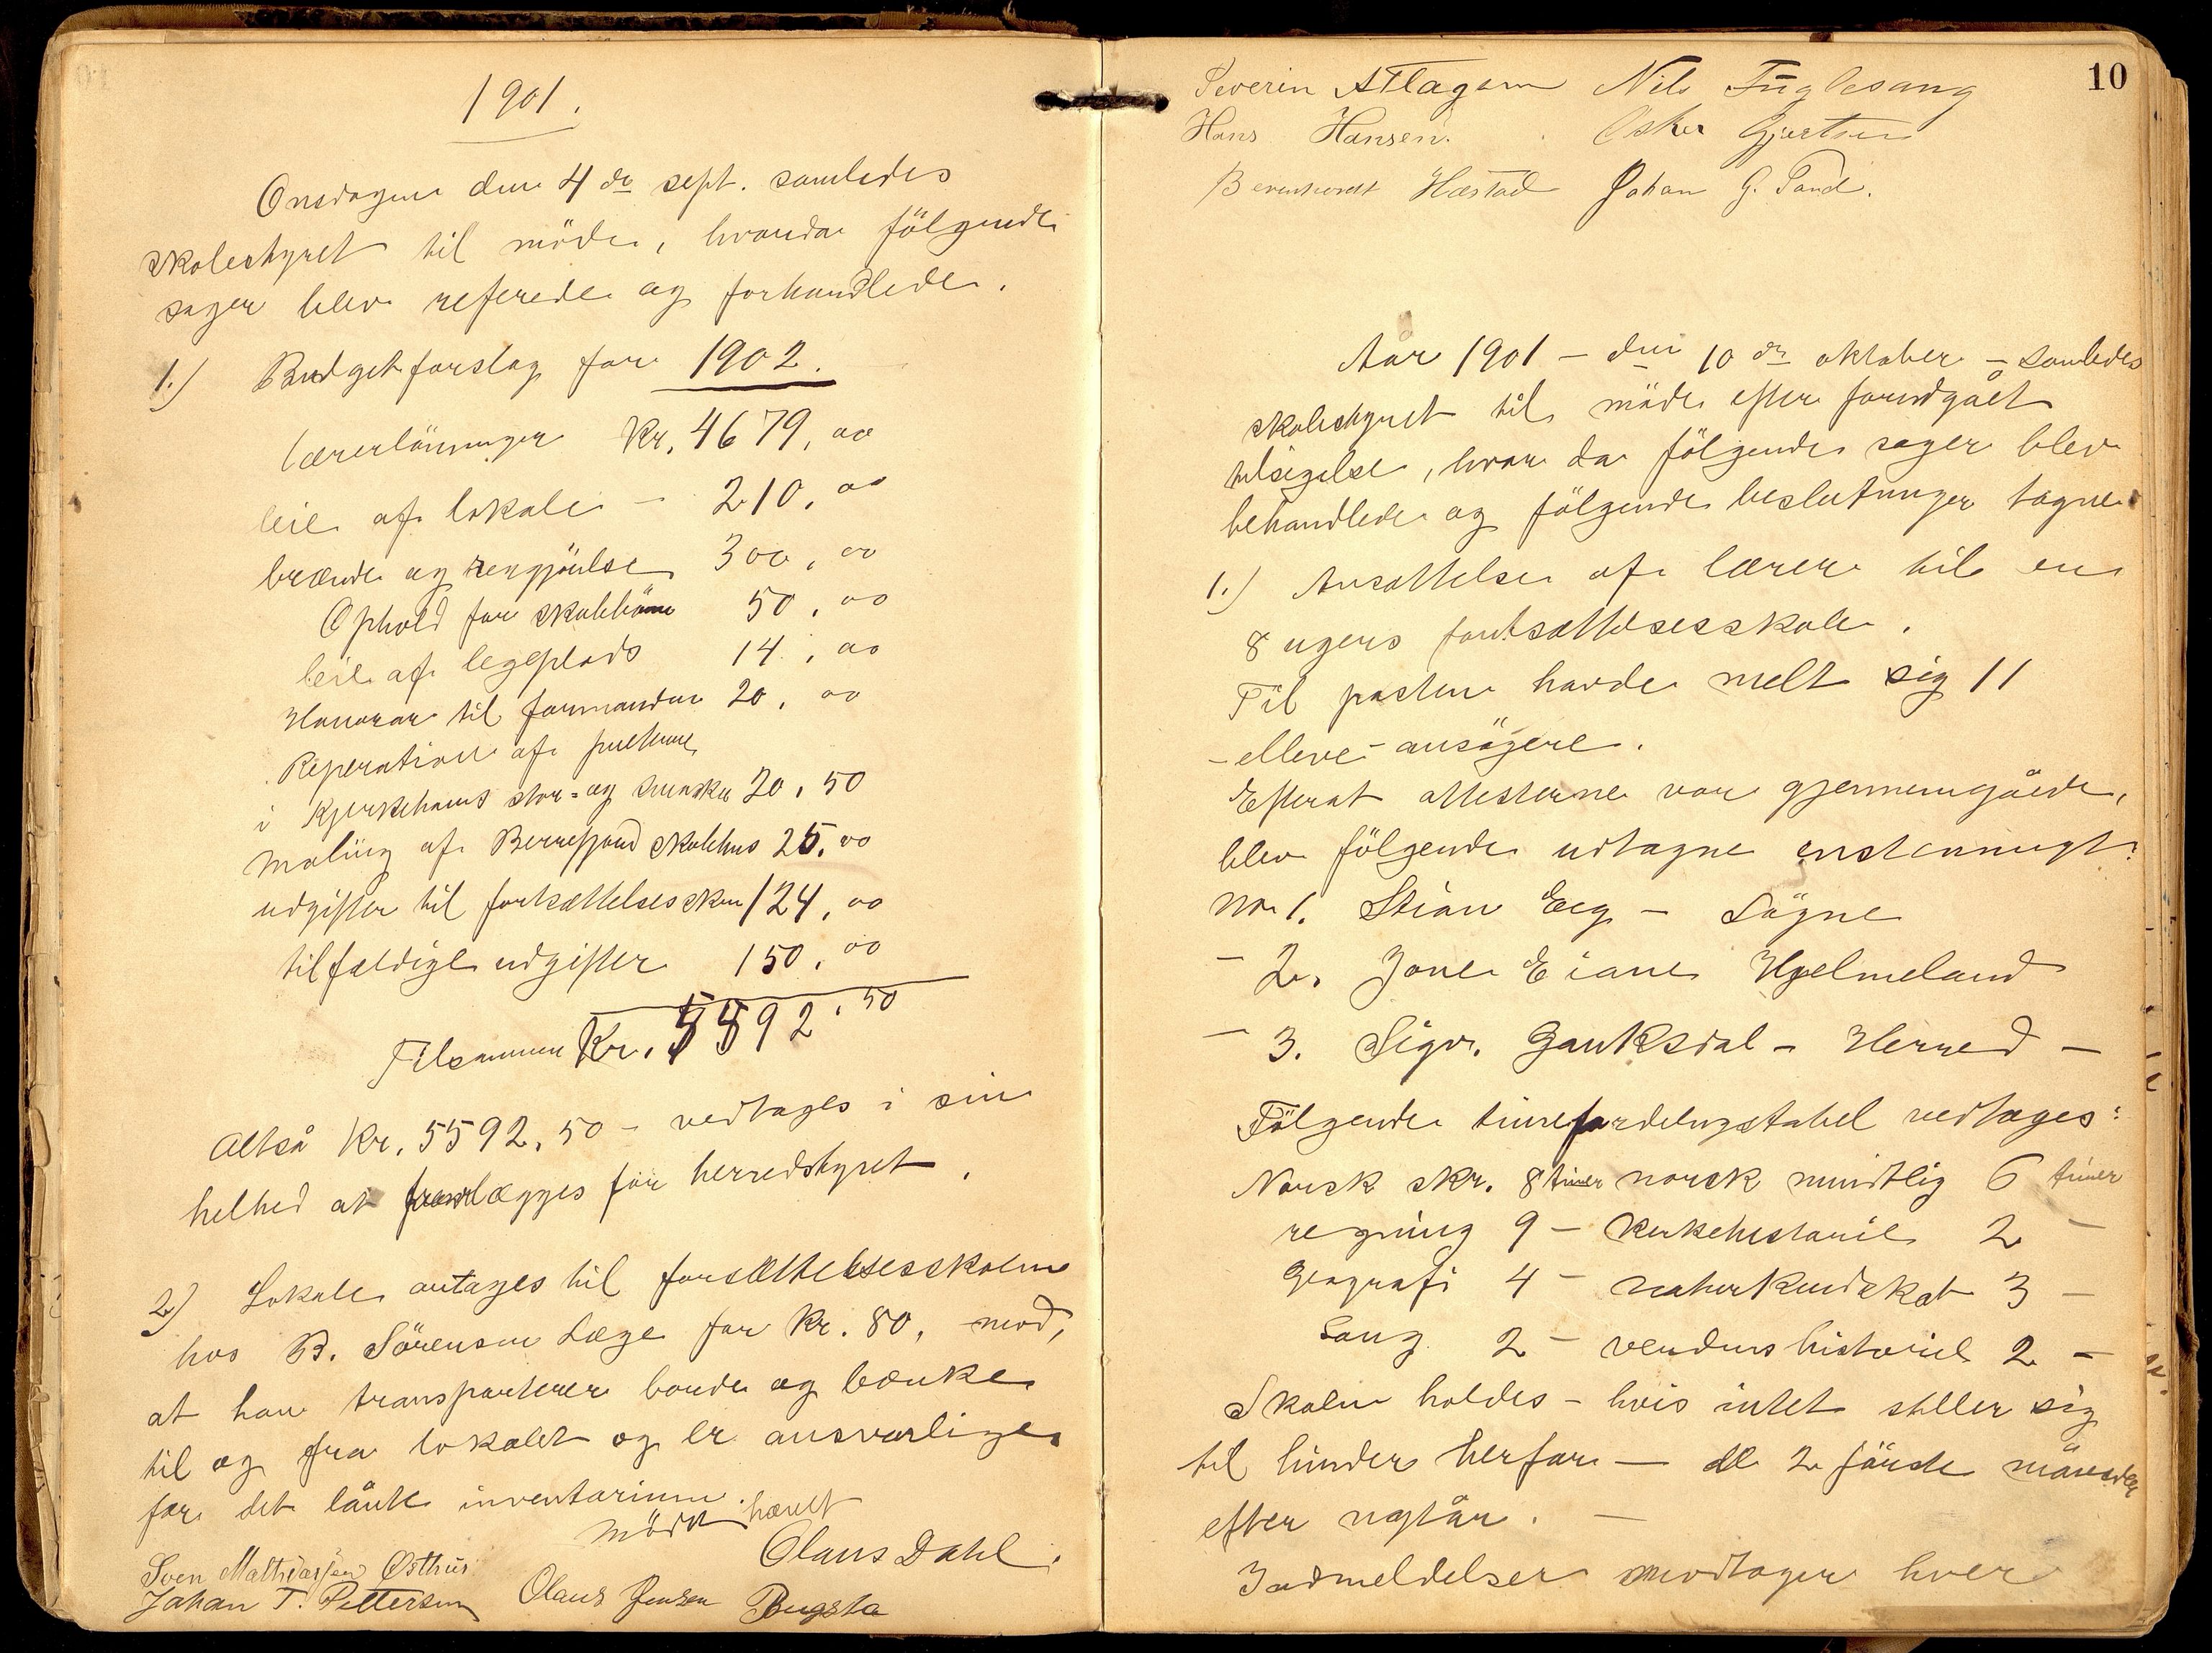 1901.
Onsdagen den 4de sept. samledes
skolestyret til möde, hvorda fölgende
sager blev referede og forhandlede.
1.) Budgetforslag for 1902.
lærerlönninger Kr. 4679,00
leie af lokale - 210,00
brænde og rengjörelse 300,00
Ophold for skolebörn 50,00
leie af legeplads 14,00
Honorar til formanden 20,00
Reperation af pultene
i Kjerkehavns stor- og småskole 20,50
Maling af Berrefjord skolehus 25,00
udgifter til fortsættelsesskolen 124,00
tilfældige udgifter 150,00
Tilsammen Kr. 5592,50
Altså Kr. 5592,50 - vedtages i sin
helhed at fremlægges for herredstyret.
2) Lokale antages til forsættelsesskolen
hos B. Sörensen Læge for Kr. 80, mod,
at han transporterer borde og bænke
til og fra lokalet og er ansvarlige
for det lånte inventarium.
Mödet hævet
Olaus Dahl.
Sven Mathiassen Østhus
Johan T. Pettersen Olaus Jensen Bugsta
10
Severin Attagsen Nils Fuglesang
Hans Hansen. Oskar Gjertsen
Berenhardt Hæstad Johan G. Sand.
Aar 1901 - den 10de oktober - samledes
skolestyret til möde efter foregået
tilsigelse, hvor da fölgende sager blev
behandlede og fölgende beslutninger tagne
1.) Ansættelse af lærer til en
8 ugers fortsættelsesskole.
Til posten havde melt sig 11
- elleve - ansögere.
Efterat attesterne var gjennemgåede,
blev fölgende udtagne enstemmigt:
No 1. Stian Eeg - Sögne
- 2. Jone Eiane Hjelmeland
- 3. Sigv. Gauksdal - Herred -
Fölgende timefordelingstabel vedtages:
Norsk skr. 8 timer norsk mundtlig 6 timer
regning 9 - kirkehistorie 2 -
Geografi 4 - naturkundskab 3 -
Sang 2 - verdenshistorie 2 -
Skolen holdes - hvis intet stiller sig
til hinder herfor - de 2 förste måneder
efter nytår. -
Indmeldelser modtager hver